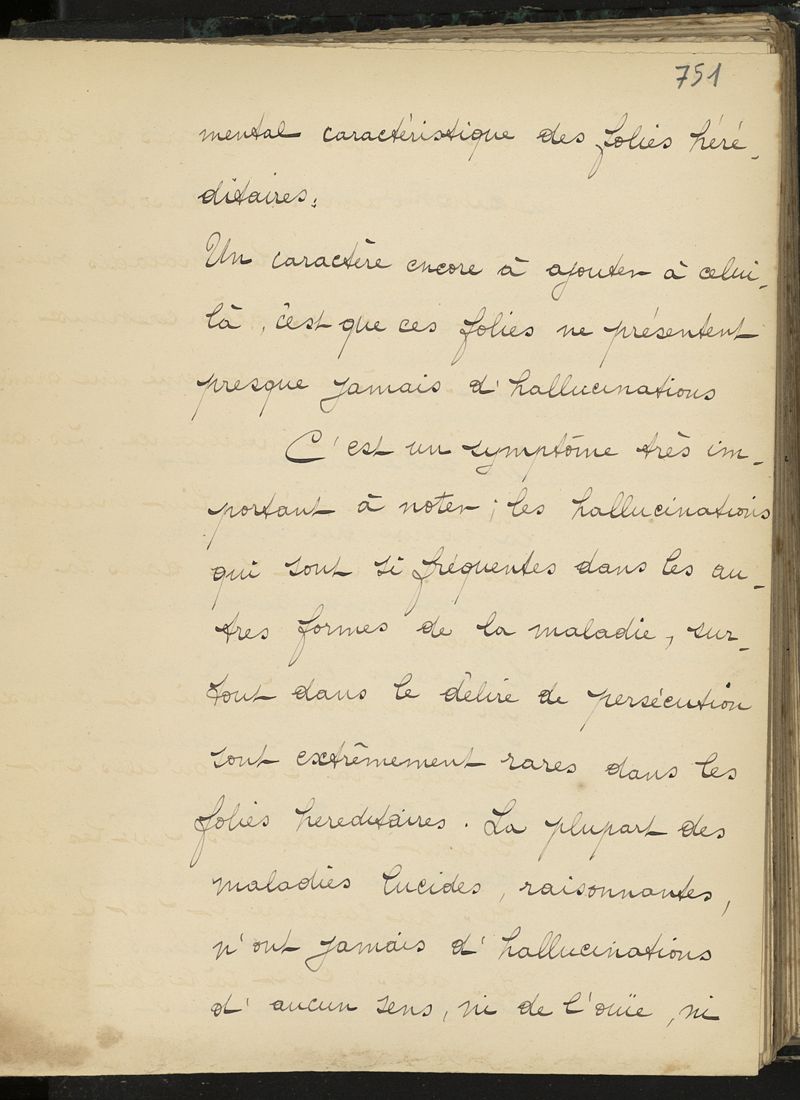 751
mental caractéristique des folies héré-
ditaires.
Un caractère encore à ajouter à celui-
là, c'est que ces folies ne présentent
presque jamais d'hallucinations
C'est un symptôme très im-
portant à noter ; les hallucinations
qui sont si fréquentes dans les au-
tres formes de la maladie, sur-
tout dans le délire de persécution
sont extrêmement rares dans les
folies hereditaires. La plupart des
maladies lucides, raisonnantes,
n'ont jamais d'hallucinations
d'aucun sens, ni de l'ouïe, ni